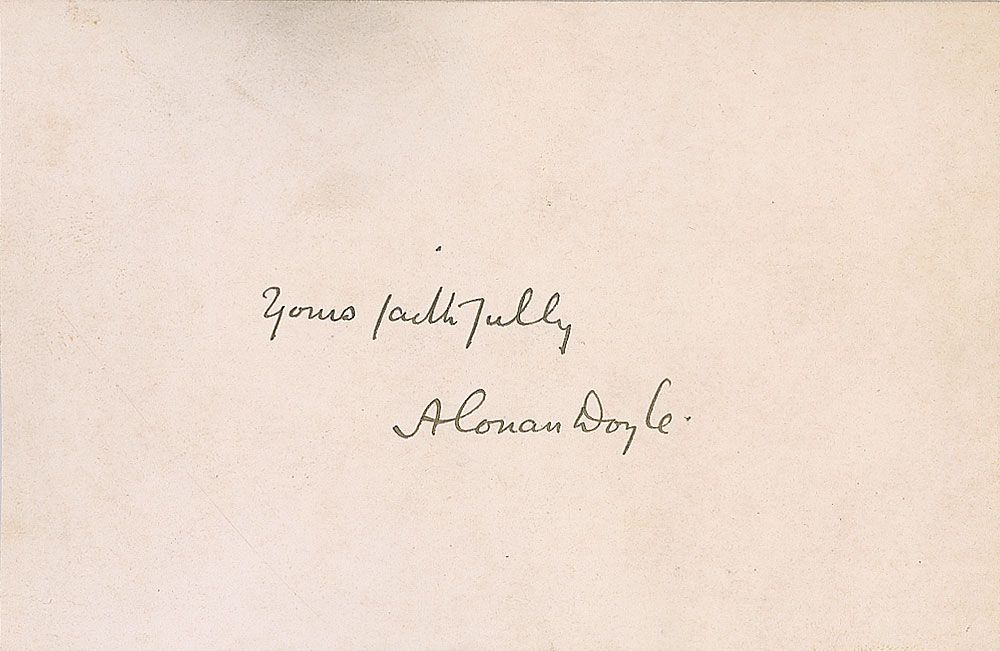 Yours faithfully
A Conan Doyle.